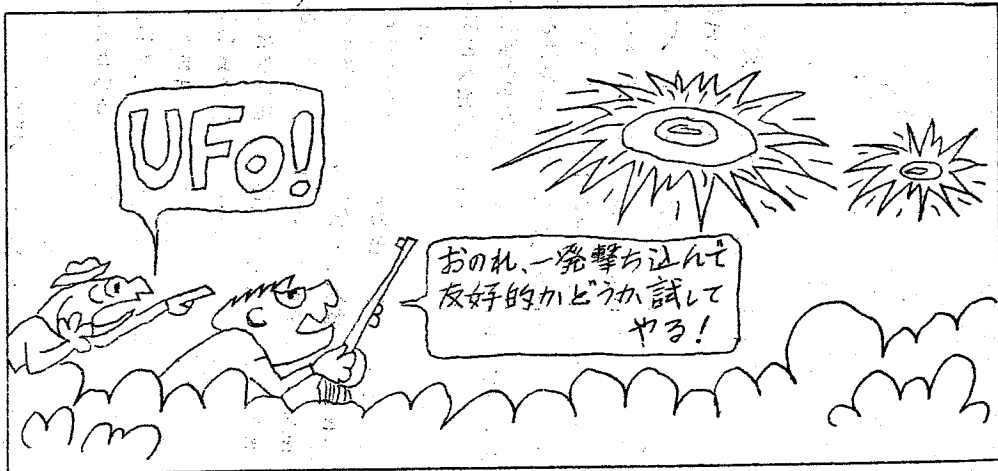 UFO!
おのれ、一発撃ち込んで
友好的かどうか試して
やる!